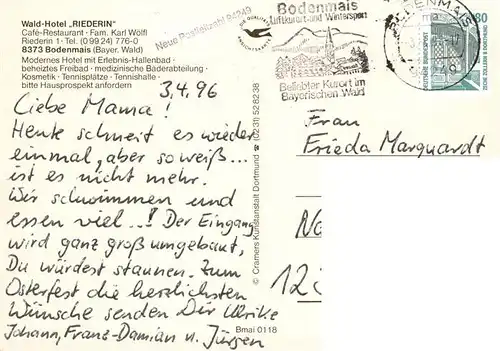 Wald-Hotel „RIEDERIN"
Café-Restaurant · Fam. Karl Wölfl
Riederin 1 · Tel. (0 99 24) 776-0
8373 Bodenmais (Bayer. Wald)
Modernes Hotel mit Erlebnis-Hallenbad ·
beheiztes Freibad · medizinische Badeabteilung ·
Kosmetik · Tennisplätze · Tennishalle ·
bitte Hausprospekt anfordern
Neue Postleitzahl 94249
Bodenmais
Luftkurort und Wintersport
Beliebter Kurort im
Bayerischen Wald
BODENMAIS
80
DEUTSCHE BUNDESPOST
ZECHE ZOLLERN II DORTMUND
3.4.96
Liebe Mama!
Heute schneit es wieder
einmal, aber so weiß...
ist es nicht mehr.
Wir schwimmen und
essen viel...! Der Eingang
wird ganz groß umgebaut,
Du würdest staunen. Zum
Osterfest die herzlichsten
Wünsche senden Dir Ulrike
Johann, Franz-Damian u. Jürgen
© Cramers Kunstanstalt Dortmund (0231) 528238
Bmai 0118
Frau
Frieda Marquardt